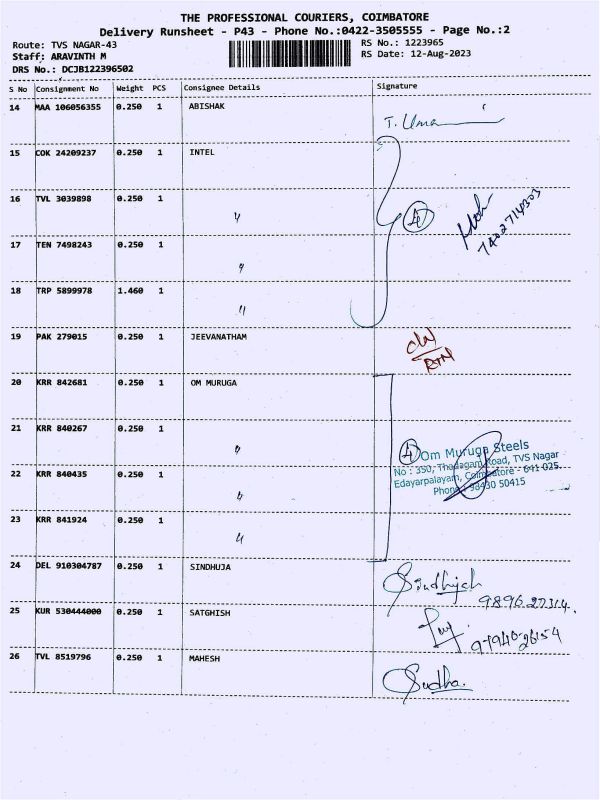 THE PROFESSIONAL COURIERS, COIMBATORE
Delivery Runsheet - P43 - Phone No.:0422-3505555 - Page No.:2
Route: TVS NAGAR-43 RS No.: 1223965
Staff: ARAVINTH M RS Date: 12-Aug-2023
DRS No.: DCJB122396502
S No Consignment No Weight PCS Consignee Details Signature
14 MAA 106056355 0.250 1 ABISHAK T. Uma
15 COK 24209237 0.250 1 INTEL
16 TVL 3039898 0.250 1 " 4
7402714303
17 TEN 7498243 0.250 1 "
18 TRP 5899978 1.460 1 "
19 PAK 279015 0.250 1 JEEVANATHAM
RTN
20 KRR 842681 0.250 1 OM MURUGA
21 KRR 840267 0.250 1 " 4
Om Muruga Steels
No : 350, Thadagam Road, TVS Nagar
Edayarpalayam, Coimbatore - 641 025.
Phone : 98430 50415
22 KRR 840435 0.250 1 "
23 KRR 841924 0.250 1 "
24 DEL 910304787 0.250 1 SINDHUJA Sindhujah
9896 27314.
25 KUR 530444000 0.250 1 SATGHISH
97940 26154
26 TVL 8519796 0.250 1 MAHESH Sudha.